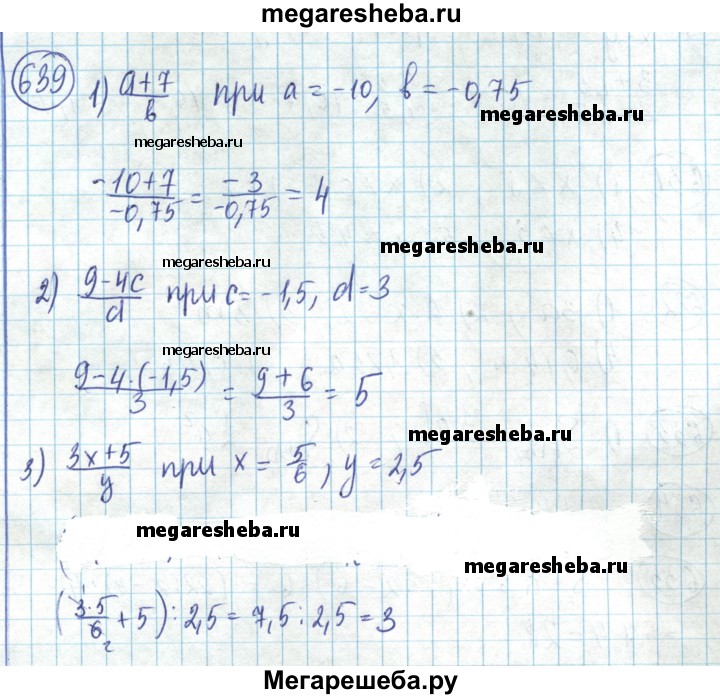 megaresheba.ru
639
1) (a+7)/b при a = -10, b = -0,75
megaresheba.ru
megaresheba.ru
(-10+7)/(-0,75) = (-3)/(-0,75) = 4
megaresheba.ru
megaresheba.ru
2) (9-4c)/d при c = -1,5, d = 3
megaresheba.ru
megaresheba.ru
(9-4·(-1,5))/3 = (9+6)/3 = 5
megaresheba.ru
3) (3x+5)/y при x = 5/6, y = 2,5
megaresheba.ru
megaresheba.ru
(3·5/6 + 5) : 2,5 = 7,5 : 2,5 = 3
Мегарешеба.ру